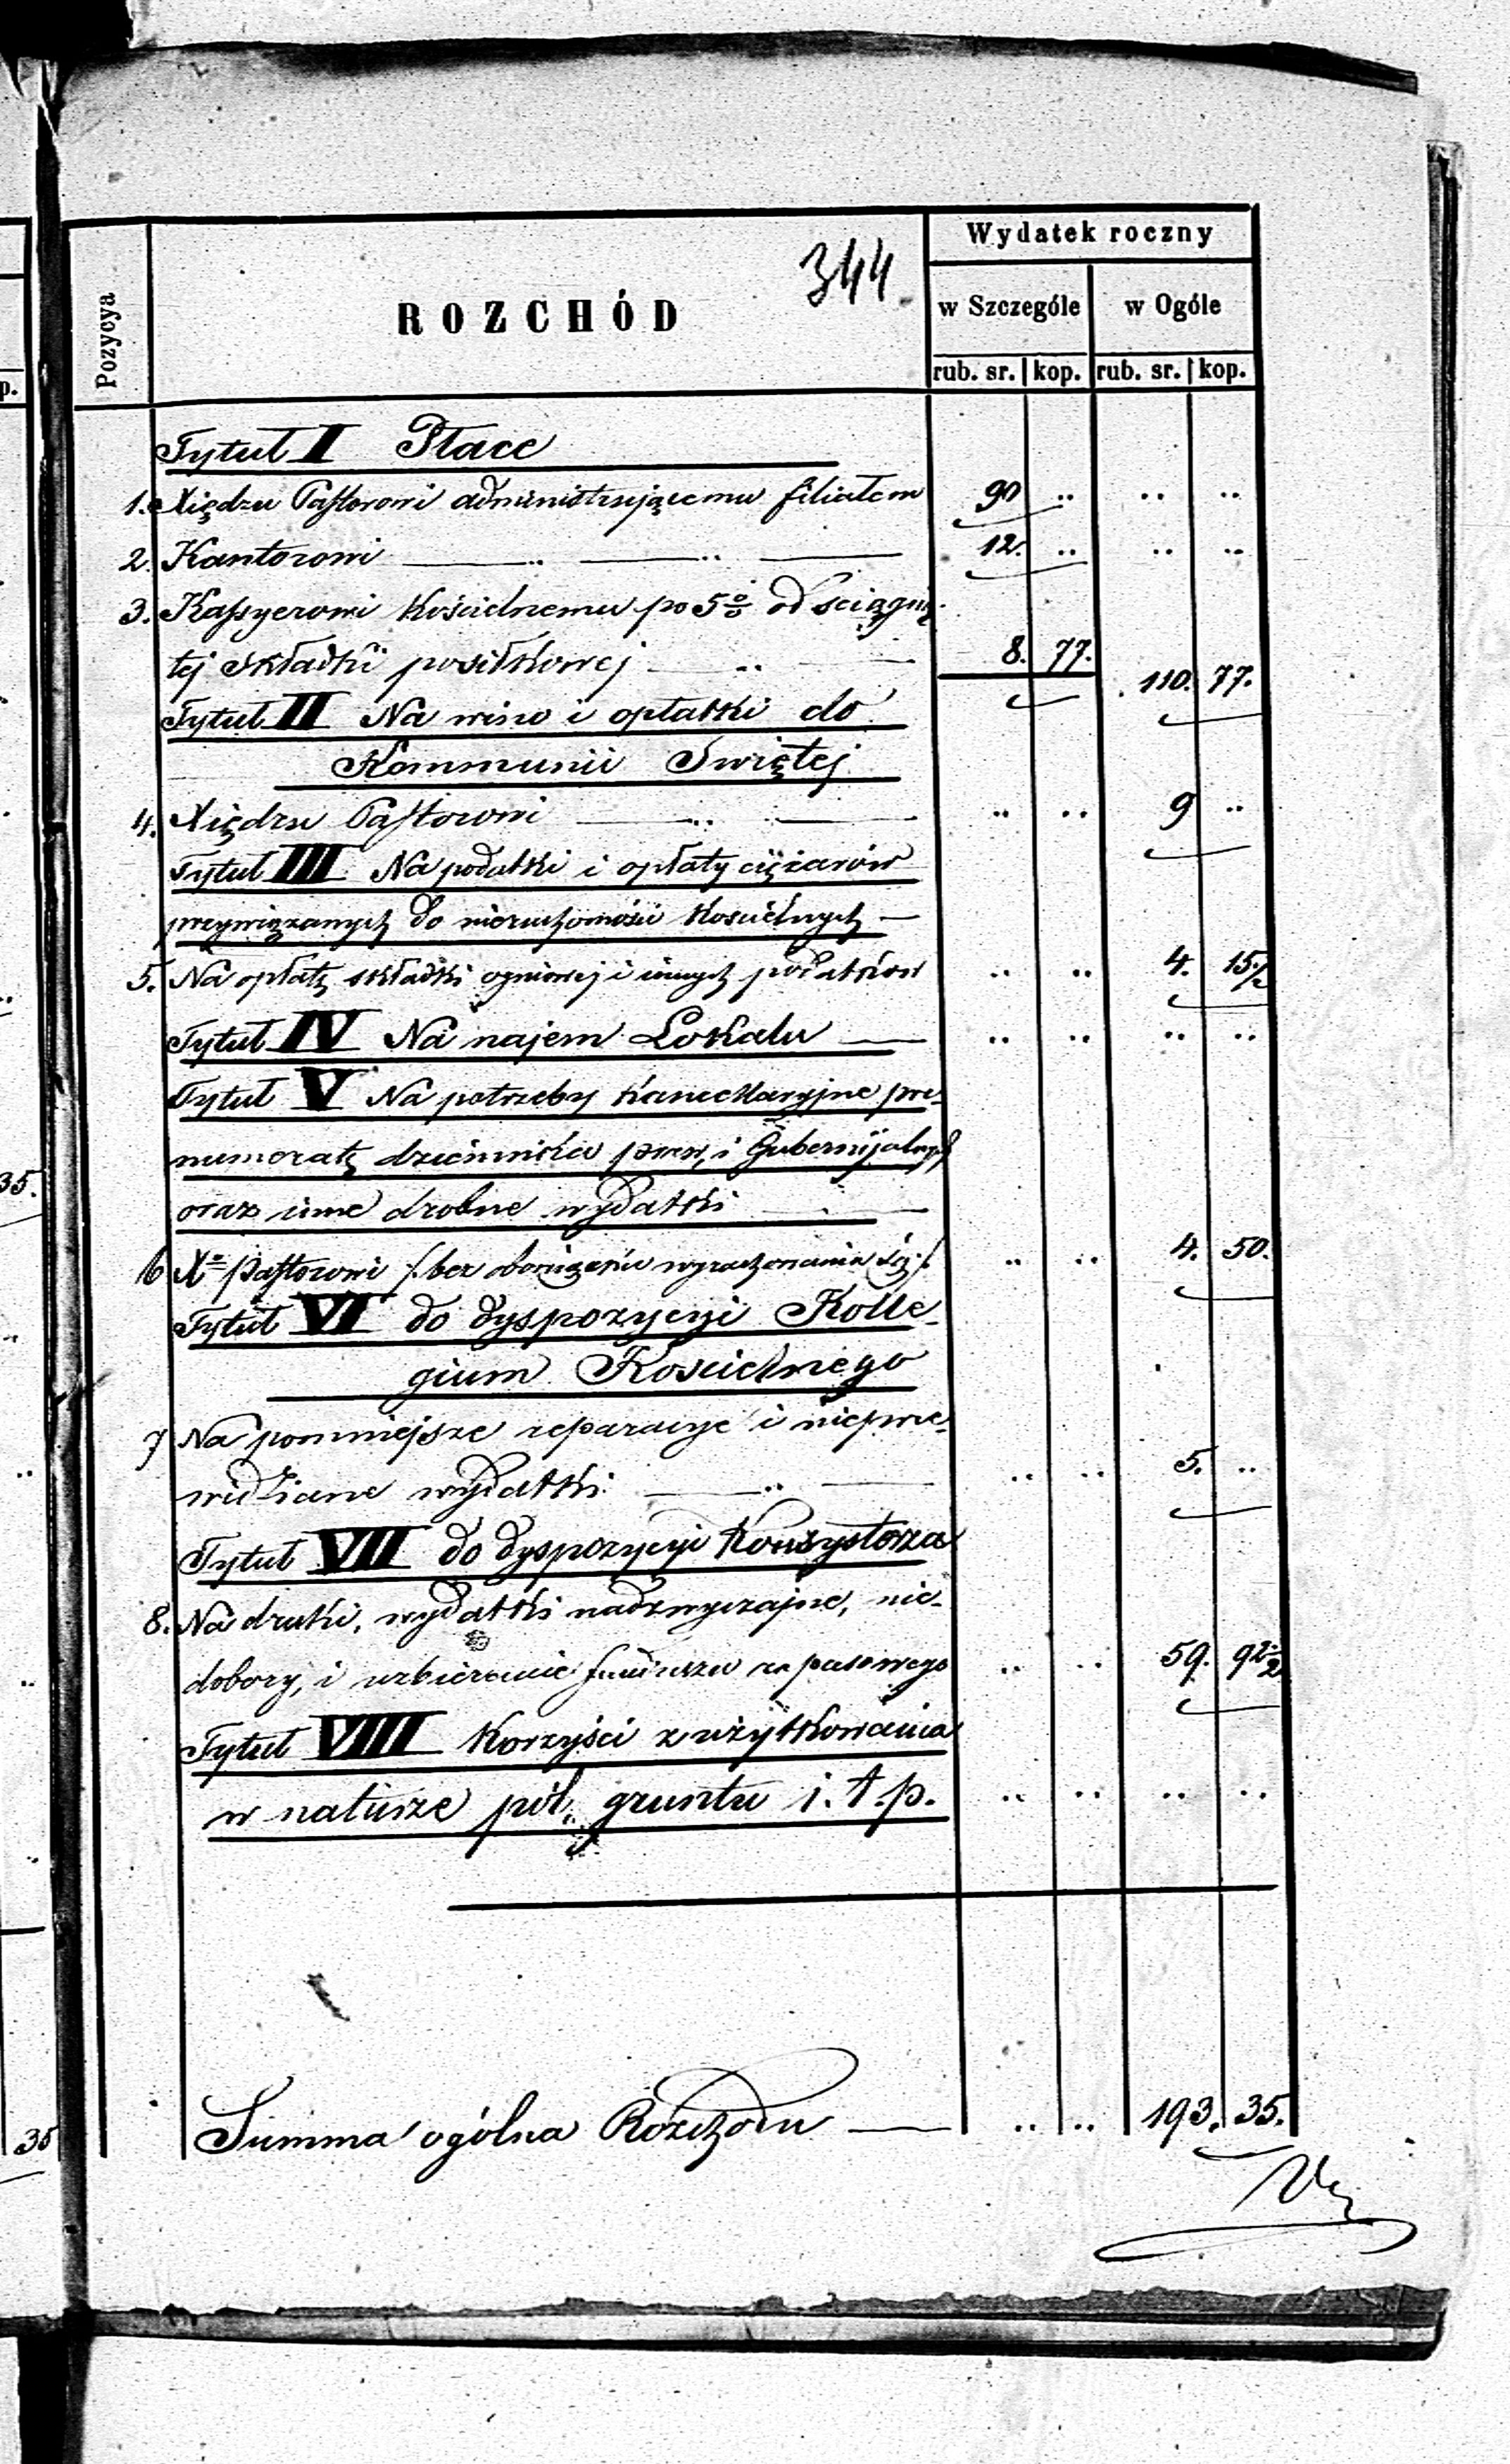 344
Wydatek roczny
Pozycya
ROZCHÓD
w Szczególe w Ogóle
rub. sr. kop. rub. sr. kop.
p.
Tytuł I Płace
1. Xiędzu Pastorowi administrującemu filiałem 90 .. .. ..
2. Kantorowi — .. — .. — 12. .. .. ..
3. Kassyerowi Kościelnemu po 5% od ściągnię-
tej składki posiłkowej — .. — 8. 77. 110. 77.
Tytuł II Na wino i opłatki do
Kommunii Świętej
4. Xiędzu Pastorowi — .. — .. .. 9 ..
Tytuł III Na podatki i opłaty ciężarów
przywiązanych do nieruchomości Kościelnych —
5. Na opłatę składki ogniowej i innych podatków .. .. 4. 15 1/2
Tytuł IV Na najem Lokalu — .. .. .. ..
Tytuł V Na potrzeby kancellaryjne pre-
numeratę dziennika praw, i Gubernijalnych
35.
oraz inne drobne wydatki —
6 Xu Pastorowi (bez obowiązku wyrachowania się) .. .. 4. 50.
Tytuł VI do dyspozycyi Kolle-
gium Kościelnego
7 Na pomniejsze reparacye i nieprze-
widziane wydatki — .. — .. .. 5. ..
Tytuł VII do dyspozycyi Konsystorza
8. Na druki, wydatki nadzwyczajne, nie-
dobory, i uzbieranie funduszu zapasowego .. .. 59. 92 1/2
Tytuł VIII Korzyści z użytkowania
w naturze pól, gruntu i. t. p. .. .. .. ..
Summa ogólna Rozchodu — .. .. 193. 35.
35